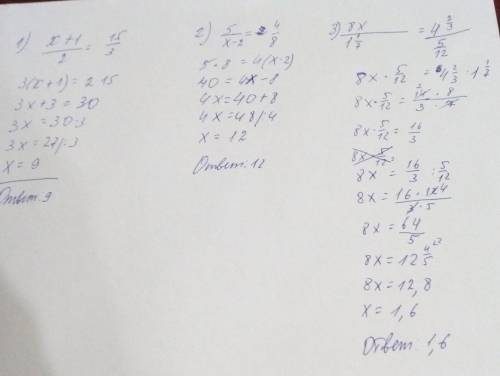 1) (x+1)/2 = 15/3
3(x+1)=2·15
3x+3=30
3x=30-3
3x=27/:3
x=9
Ответ. 9
2) 5/(x-2) = 4/8
5·8=4(x-2)
40=4x-8
4x=40+8
4x=48/:4
x=12
Ответ. 12
3) 8x
8x·5/12
8x·5/12=
8x·5/12=16/3
8x=16/3:5/12
8x=
8x=64/5
8x=12 4/5
8x=12,8
x=1,6
Ответ. 1,6